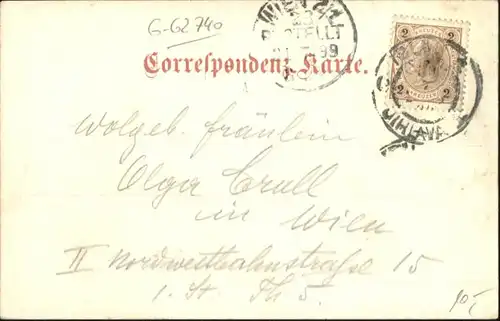 G-62740
WIEN 2/1
BESTELLT
99
Correspondenz-Karte.
2 KREUZER 2
JIHLAVA
Wolgeb. Fräulein
Olga Crull
in Wien
II Nordwestbahnstraße 15
1. St. Th 5.